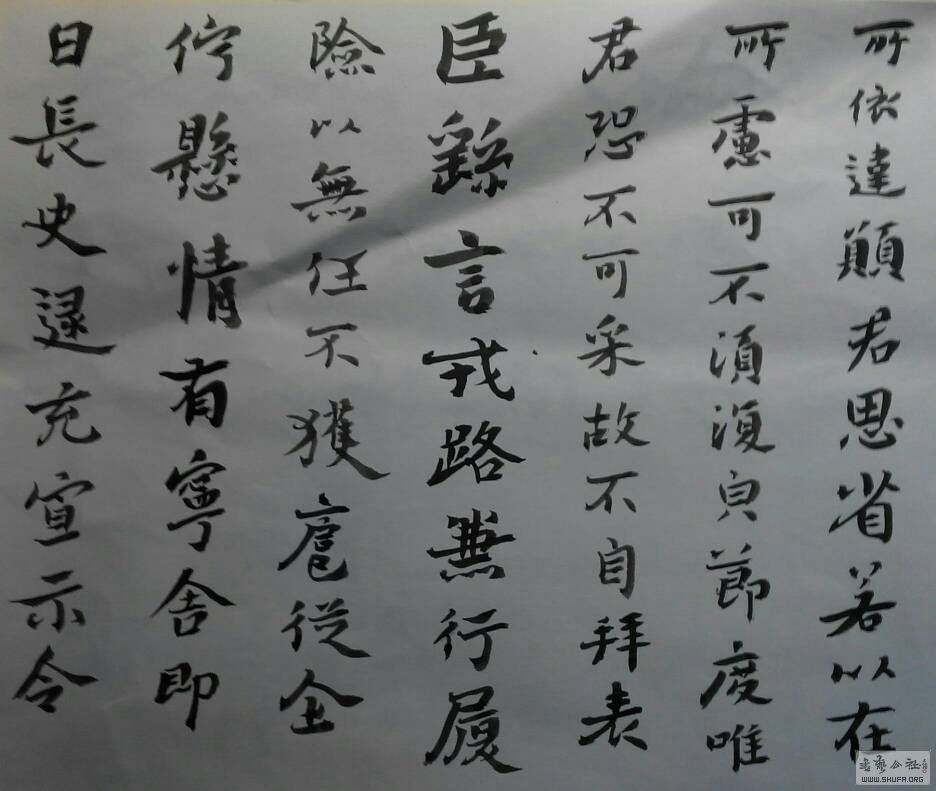 所依違願君思省若以在
所慮可不須復皃節度唯
君恐不可采故不自拜表
臣繇言戎路兼行履
險以無任不獲扈從企
佇懸情有寧舍即
日長史逮充宣示令
WWW.SHUFA.ORG